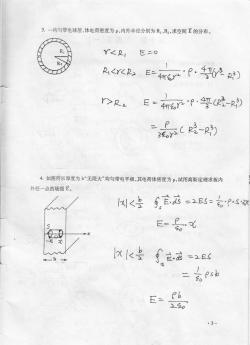 3. 一均匀带电球层,体电荷密度为ρ,内外半径分别为R₁,R₂,求空间E的分布。
r<R₁ E=0
R₁<r<R₂ E=1/(4πε₀r²)·ρ·4π/3(r³-R₁³)
r>R₂ E=1/(4πε₀r²)·ρ·4π/3(R₂³-R₁³)
=ρ/(3ε₀r²)(R₂³-R₁³)
4. 如图所示厚度为b"无限大"均匀带电平板,其电荷体密度为ρ,试用高斯定理求板内
外任一点的场强E。
|x|<b/2 ∮ₛE·dS=2ES=1/ε₀·ρ·S·2x
E=ρ/ε₀·x
|x|<b/2 ∮ₛE·dS=2ES
=1/ε₀ρSb
E=ρb/2ε₀
·3·